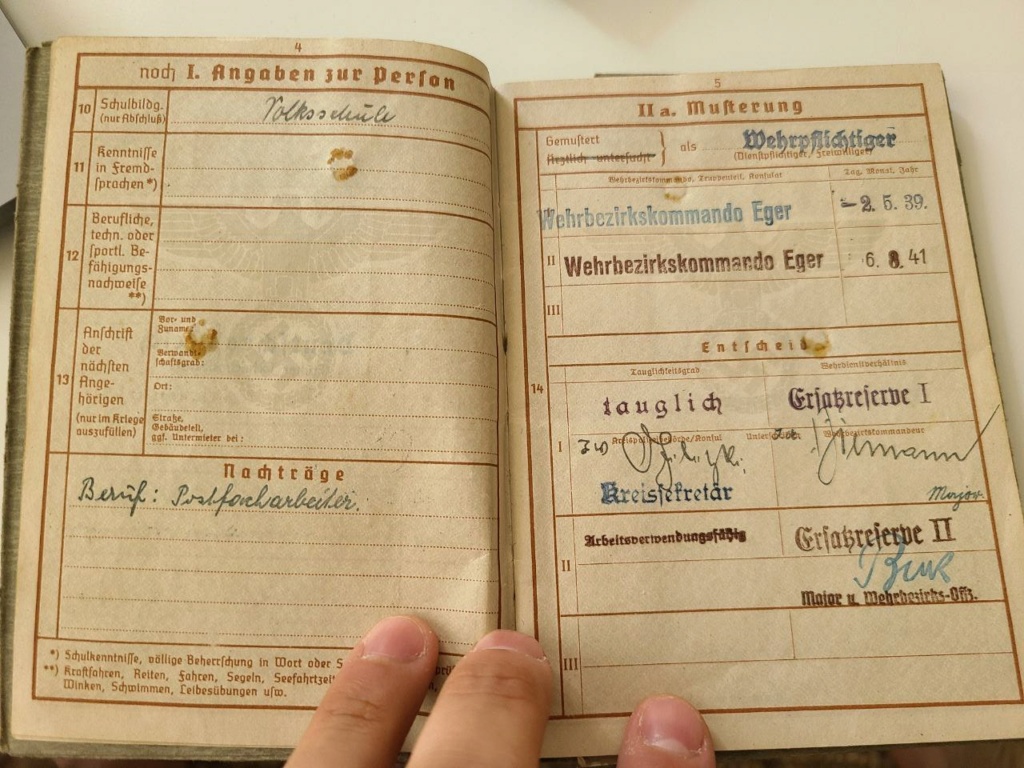 4
noch I. Angaben zur Person
10 Schulbildg. (nur Abschluß) Volksschule
11 Kenntnisse in Fremd-
sprachen*)
12 Berufliche,
techn. oder
sportl. Be-
fähigungs-
nachweise
**)
13 Anschrift
der
nächsten
Ange-
hörigen
(nur im Kriege
auszufüllen)
Vor- und
Zuname:
Verwandt-
schaftsgrad:
Ort:
Straße,
Gebäudeteil,
ggf. Untermieter bei:
Nachträge
Beruf: Postfacharbeiter.
*) Schulkenntnisse, völlige Beherrschung in Wort oder
**) Kraftfahren, Reiten, Fahren, Segeln,
Winken, Schwimmen, Leibesübungen usw.
5
IIa. Musterung
Gemustert
Ärztlich untersucht } als Wehrpflichtiger
(Dienstpflichtiger, Freiwilliger)
Wehrbezirkskommando, Truppenteil, Konsulat Tag, Monat, Jahr
Wehrbezirkskommando Eger -2. 5. 39.
II Wehrbezirkskommando Eger 6. 8. 41
III
Entscheid
14
Tauglichkeitsgrad Wehrdienstverhältnis
tauglich Ersatzreserve I
I
Kreispolizeibehörde/Konsul Wehrbezirkskommandeur
Kreissekretär Major
II Arbeitsverwendungsfähig Ersatzreserve II
Major u. Wehrbezirks-Offz.
III